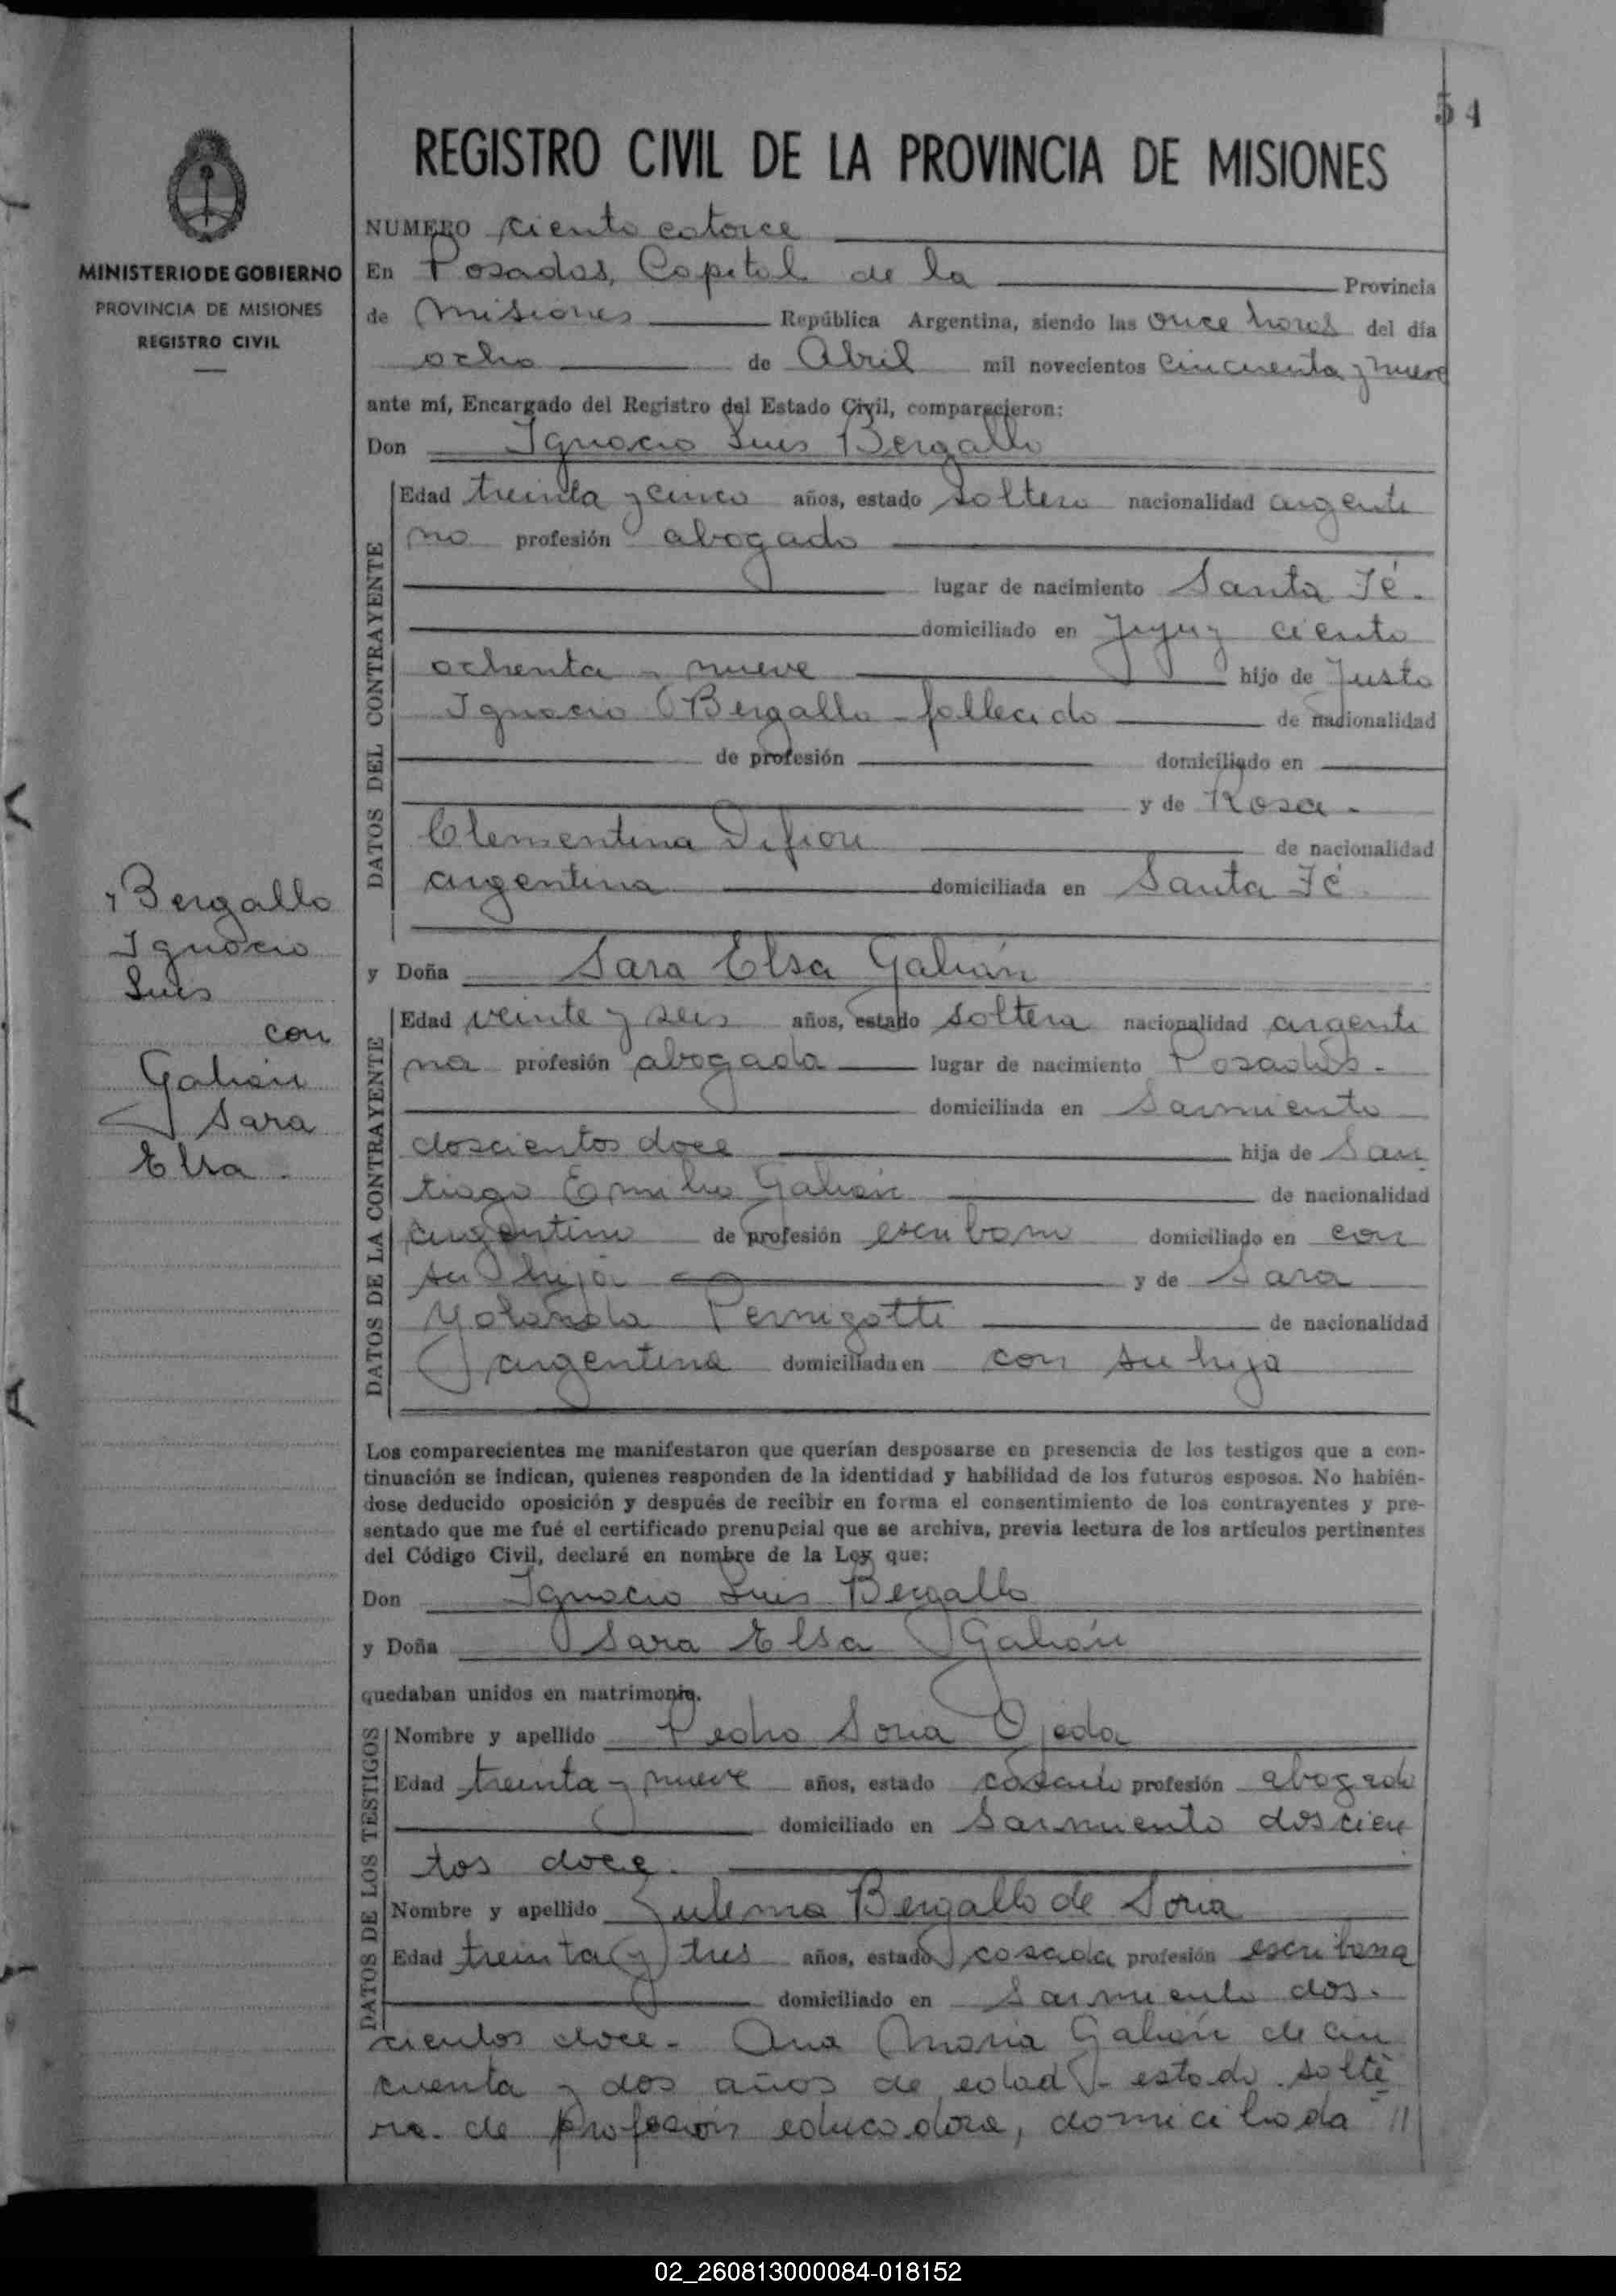 54
REGISTRO CIVIL DE LA PROVINCIA DE MISIONES
MINISTERIO DE GOBIERNO
PROVINCIA DE MISIONES
REGISTRO CIVIL
NUMERO ciento catorce
En Posadas, Capital de la Provincia
de Misiones República Argentina, siendo las once horas del día
ocho de Abril mil novecientos cincuenta y nueve
ante mí, Encargado del Registro del Estado Civil, comparecieron:
Don Ignacio Luis Bergallo
DATOS DEL CONTRAYENTE
Edad treinta y cinco años, estado soltero nacionalidad argenti
no profesión abogado
lugar de nacimiento Santa Fé.
domiciliado en Jujuy ciento
ochenta y nueve hijo de Justo
Ignacio Bergallo - fallecido de nacionalidad
de profesión domiciliado en
y de Rosa
Clementina Difiori de nacionalidad
argentina domiciliada en Santa Fé.
Bergallo
Ignacio
Luis
con
Galián
Sara
Elsa.
y Doña Sara Elsa Galián
DATOS DE LA CONTRAYENTE
Edad veinte y seis años, estado soltera nacionalidad argenti
na profesión abogada lugar de nacimiento Posadas.
domiciliada en Sarmiento
doscientos doce hija de San
tiago Emilio Galián de nacionalidad
argentino de profesión escribano domiciliado en con
su hija y de Sara
Yolanda Pernigotti de nacionalidad
argentina domiciliada en con su hija
Los comparecientes me manifestaron que querían desposarse en presencia de los testigos que a con-
tinuación se indican, quienes responden de la identidad y habilidad de los futuros esposos. No habién-
dose deducido oposición y después de recibir en forma el consentimiento de los contrayentes y pre-
sentado que me fué el certificado prenupcial que se archiva, previa lectura de los artículos pertinentes
del Código Civil, declaré en nombre de la Ley que:
Don Ignacio Luis Bergallo
y Doña Sara Elsa Galián
quedaban unidos en matrimonio.
DATOS DE LOS TESTIGOS
Nombre y apellido Pedro Soria Ojeda
Edad treinta y nueve años, estado casado profesión abogado
domiciliado en Sarmiento doscien
tos doce.
Nombre y apellido Zulema Bergallo de Soria
Edad treinta y tres años, estado casada profesión escribana
domiciliado en Sarmiento dos-
cientos doce - Ana Maria Galián de cin
cuenta y dos años de edad - estado solte
ra. de profesión educadora, domiciliada //
02_260813000084-018152